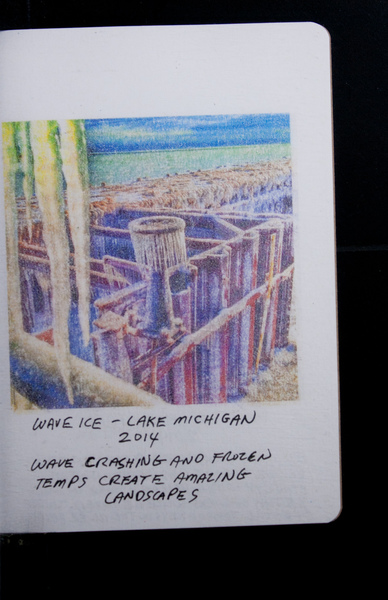 WAVE ICE - LAKE MICHIGAN
2014
WAVE CRASHING AND FROZEN
TEMPS CREATE AMAZING
LANDSCAPES